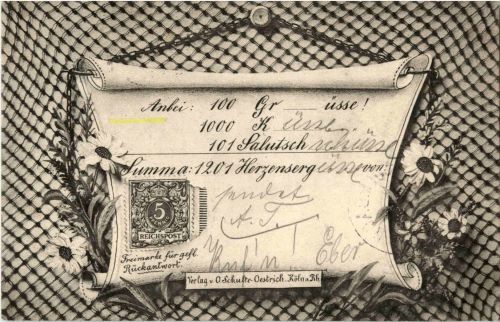 Anbei: 100 Gr___üsse!
1000 K üsse
101 Salutsch üsse
Summa: 1201 Herzenserg üsse von
sendet
A. T.
5
REICHSPOST
Freimarke für gefl.
Rückantwort
Verlag v. O. Schulte-Oestrich, Köln a/Rh.